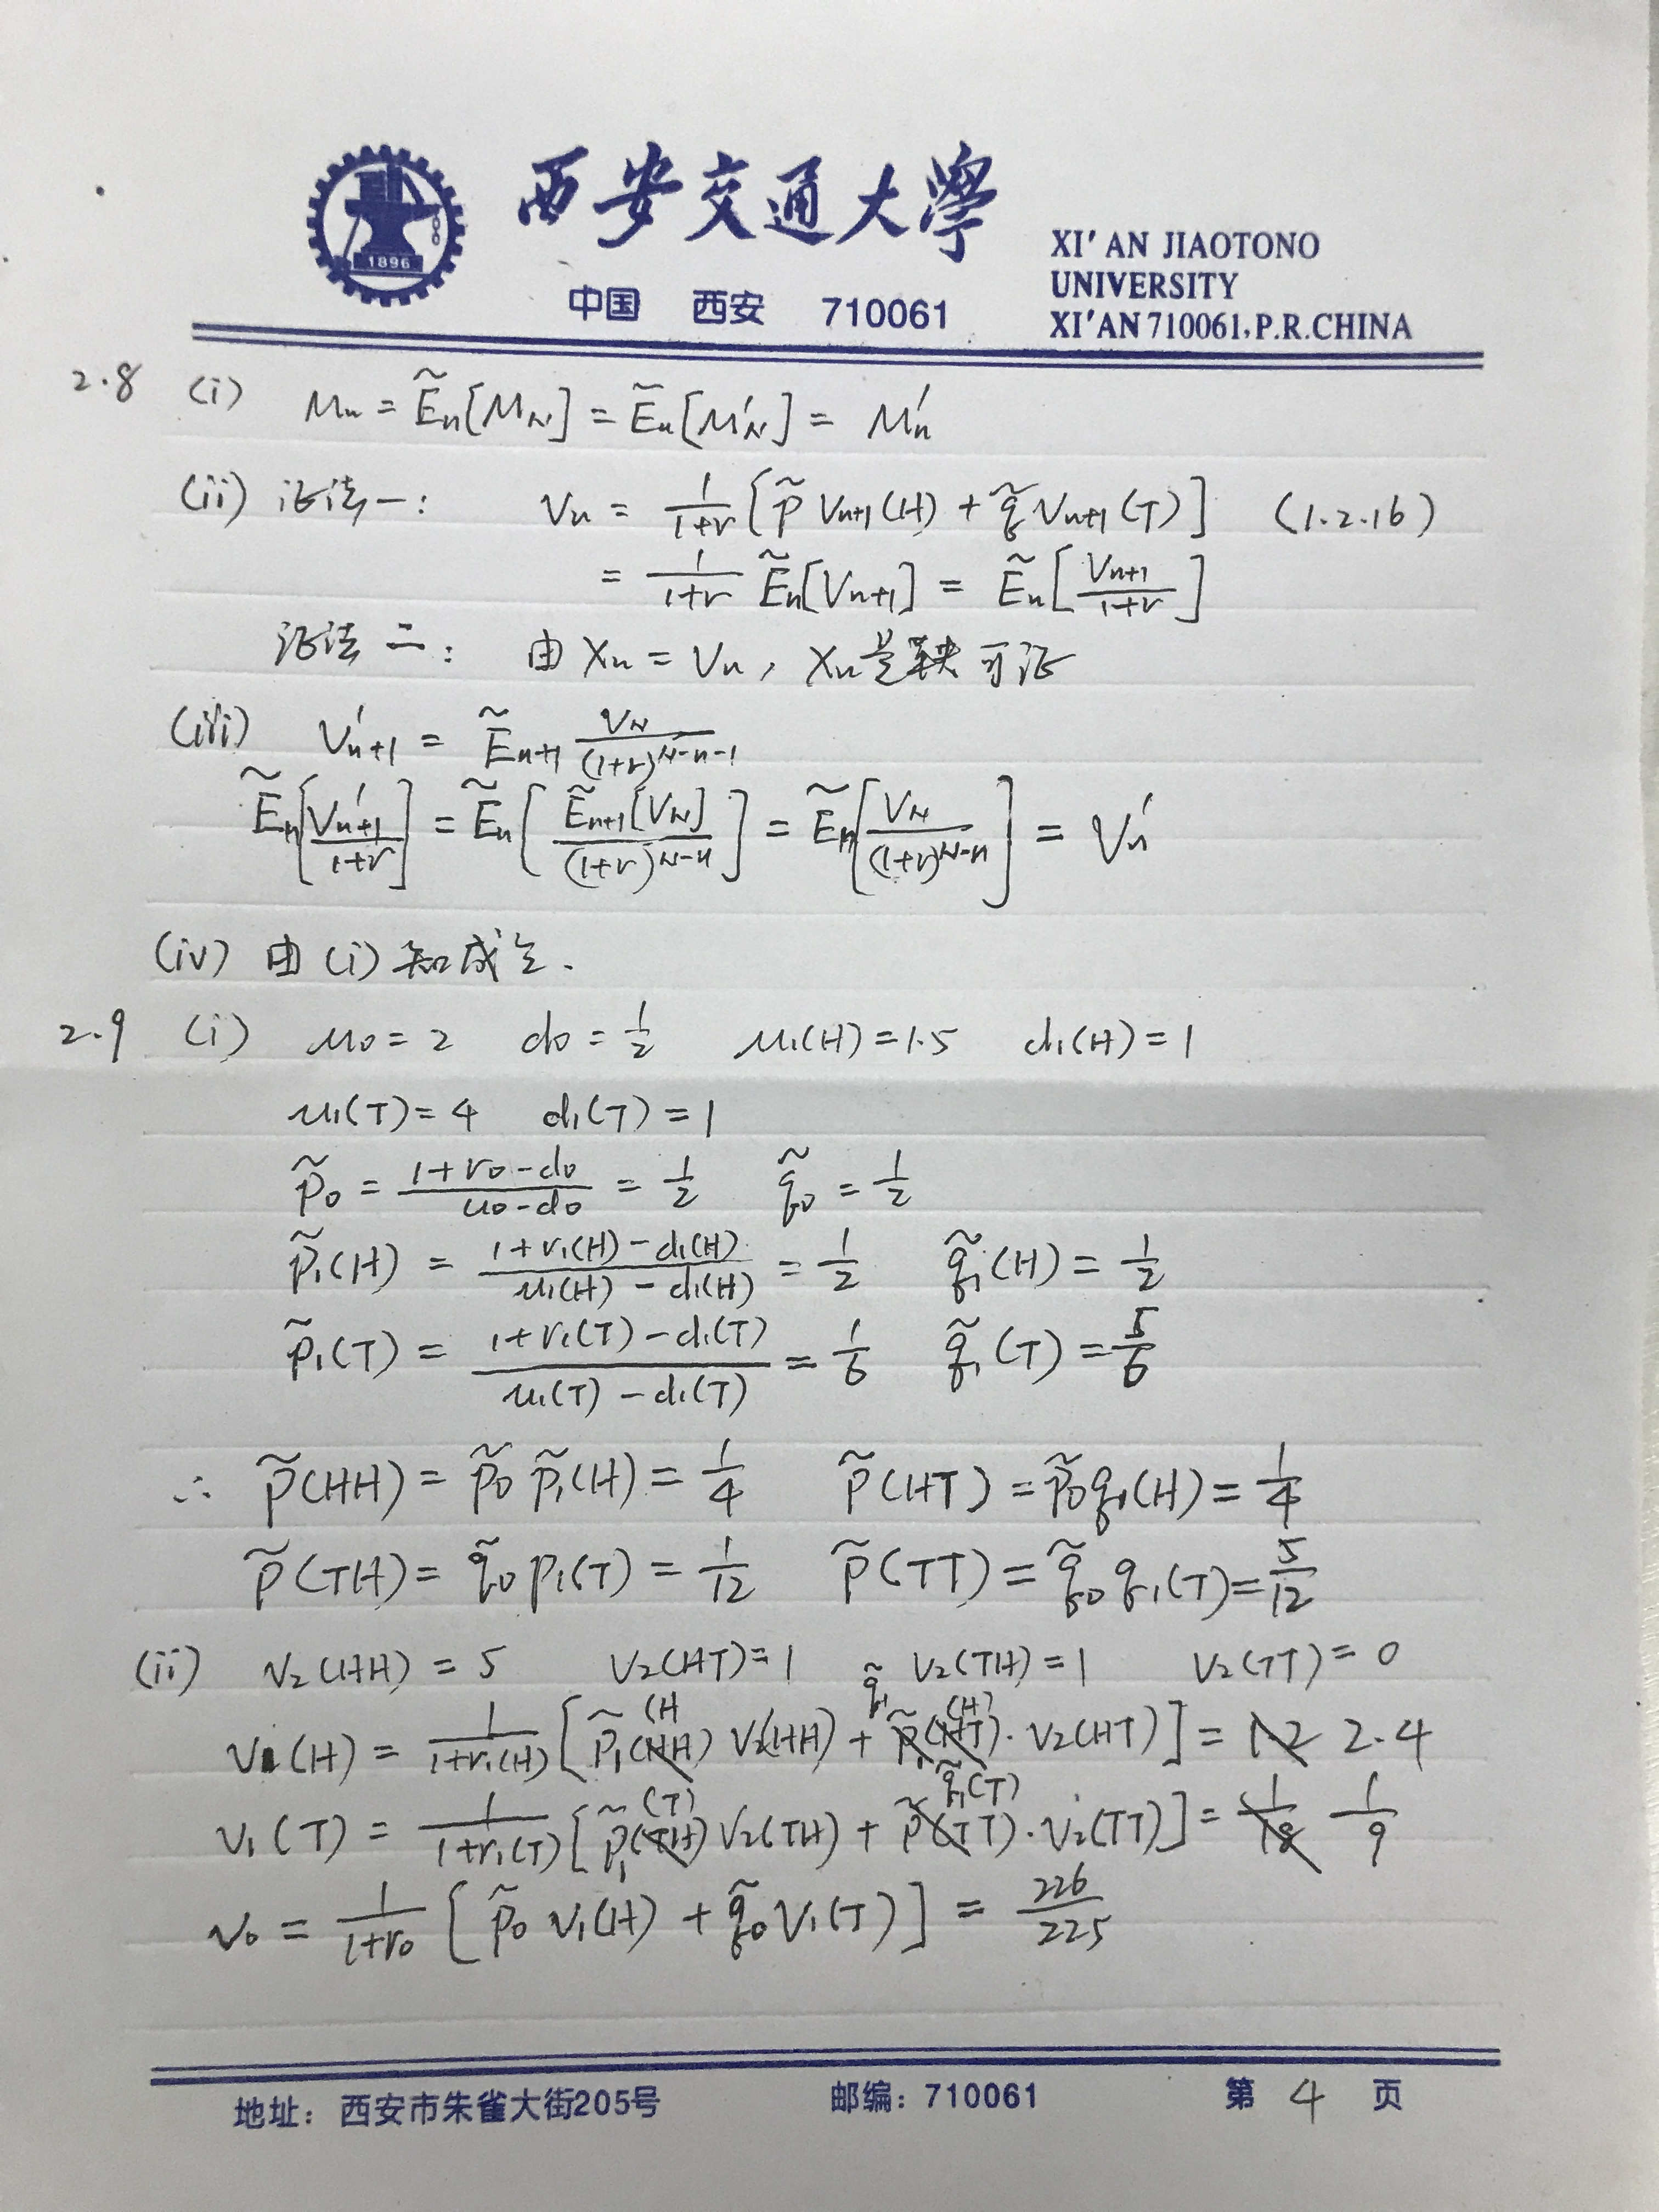 西安交通大學
1896
中国 西安 710061
XI'AN JIAOTONO
UNIVERSITY
XI'AN 710061.P.R.CHINA
2.8 (i) Mₙ = Ẽₙ[M_N] = Ẽₙ[M'_N] = M'ₙ
(ii) 证法一: Vₙ = 1/(1+r) [p̃ Vₙ₊₁(H) + q̃ Vₙ₊₁(T)] (1.2.16)
= 1/(1+r) Ẽₙ[Vₙ₊₁] = Ẽₙ[Vₙ₊₁/(1+r)]
证法二: 由 Xₙ = Vₙ, Xₙ是鞅可证
(iii) V'ₙ₊₁ = Ẽₙ₊₁ V_N/(1+r)^(N-n-1)
Ẽₙ[V'ₙ₊₁/(1+r)] = Ẽₙ[Ẽₙ₊₁[V_N]/(1+r)^(N-n)] = Ẽₙ[V_N/(1+r)^(N-n)] = V'ₙ
(iv) 由(i)知成立.
2.9 (i) u₀ = 2 d₀ = 1/2 u₁(H) = 1.5 d₁(H) = 1
u₁(T) = 4 d₁(T) = 1
p̃₀ = (1+r₀-d₀)/(u₀-d₀) = 1/2 q̃₀ = 1/2
p̃₁(H) = (1+r₁(H)-d₁(H))/(u₁(H)-d₁(H)) = 1/2 q̃₁(H) = 1/2
p̃₁(T) = (1+r₁(T)-d₁(T))/(u₁(T)-d₁(T)) = 1/6 q̃₁(T) = 5/6
∴ p̃(HH) = p̃₀ p̃₁(H) = 1/4 p̃(HT) = p̃₀q₁(H) = 1/4
p̃(TH) = q̃₀ p₁(T) = 1/12 p̃(TT) = q̃₀ q₁(T) = 5/12
(ii) V₂(HH) = 5 V₂(HT) = 1 V₂(TH) = 1 V₂(TT) = 0
V₁(H) = 1/(1+r₁(H)) [p̃₁(H) V₂(HH) + q̃₁(H)·V₂(HT)] = 2.4
V₁(T) = 1/(1+r₁(T)) [p̃₁(T) V₂(TH) + q̃₁(T)·V₂(TT)] = 1/9
V₀ = 1/(1+r₀) [p̃₀ V₁(H) + q̃₀ V₁(T)] = 226/225
地址：西安市朱雀大街205号 邮编：710061 第 4 页